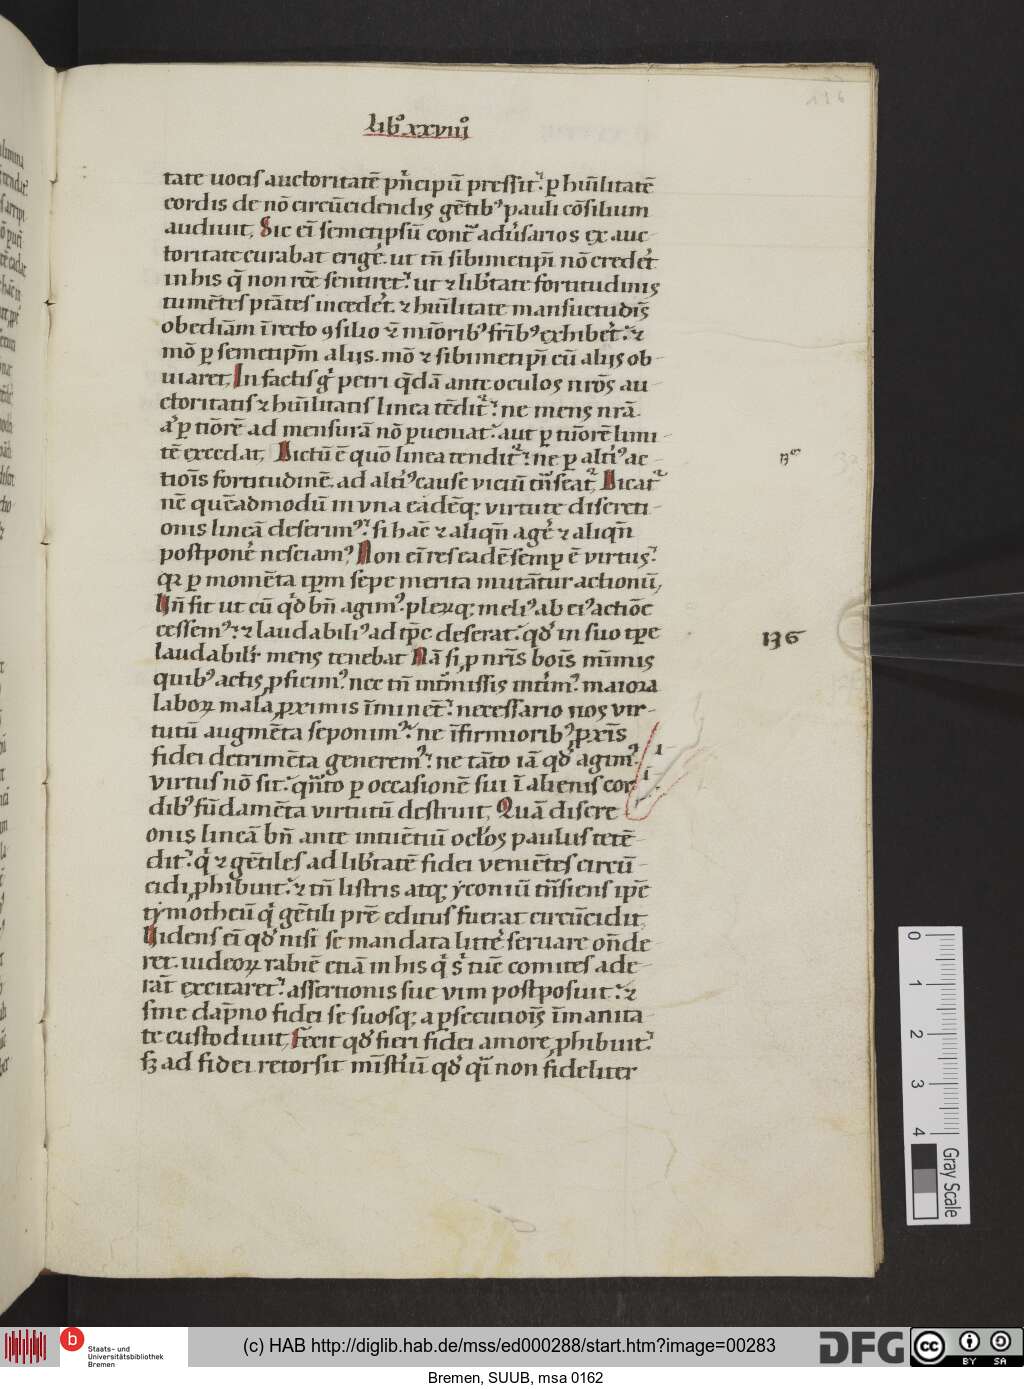 136
lib⁹ xxviij⁹
tate uocis auctoritatē pͥncipū pressit. ꝑ hūilitatē
cordis de nō circūcidendis gētib⁹ pauli cōsilium
audiuit. Sic eī semetipsū contͣ adūsarios ex auc
toritate curabat erigē. ut tn̄ sibimetipī nō credēt
in his q̄ non rēē sentiret. ut ⁊ lib̄tate fortitudinis
tumētes ptātes incedēt. ⁊ hūilitate mansuetudīs
obediām ī recto ꝯsilio ⁊ mīorib⁹ fr̄ib⁹ exhibēt. ⁊
mō ꝑ semetip̄m aliis. mō ⁊ sibimetipī cū alijs ob
uiaret. In factis gͥ petri q̄dā ante oculos nr̄os au
ctoritatis ⁊ hūilitatis linea tēdit᷑. ne mens nr̄a
aͭ ꝑ tīorē ad mensurā nō ꝑueniat. aut ꝑ tīorē limi
tē excedat. Dictū ē quō linea tendit᷑. ne ꝑ altī⁹ ac
tioīs fortitudinē. ad altī⁹ cause viciū tn̄seat᷑. Dicat᷑
nē quēadmodū in vna eadēq; virtute discreti
onis lineā deserim⁹. si hāc ⁊ aliqn̄ agē ⁊ aliqn̄
postponē nesciam⁹. Non eī res eadē semꝑ ē virtus.
qꝛ ꝑ momēta tp̄m sepe merita mutātur actionū,
Vn̄ fit ut cū qͥd bn̄ agim⁹. pleꝛūq; meli⁹ ab ei⁹ actiōe
cessem⁹. ⁊ laudabili⁹ ad tp̄ꝰ deserat. qđ in suo tp̄e
laudabilīr mens tenebat Nā si ꝓ nr̄is boīs mīmis
quib⁹ actis ꝓficim⁹. nec tn̄ intͥmissis intͥim⁹. maiora
laboꝝ mala ꝓximis īminēt. necessario nos vir
tutū augmēta seponim⁹. ne īfirmiorib⁹ ꝓxīs
fidei detrimēta generem⁹. ne tāto iā qđ agim⁹.
virtus nō sit. qn̄to ꝑ occasionē sui ī alienis cor
dib⁹ fūdamēta virtutū destruit. Quā discre
onis lineā bn̄ ante intuētiū oclos paulus tetē
dit. qͥ ⁊ gētiles ad lib̄tatē fidei veniētes circū
cidi ꝓhibuit. ⁊ tn̄ listris atq; yconiū tn̄siens ipē
tymotheū qͥ gētili pr̄e editus fuerat circūcidit
Videns eī qđ nisi se mandata littē seruare on̄de
ret. iudeoꝝ rabiē etiā in his qͥ sͥ tūc comites ade
rāt excitaret. assertionis sue vim postposuit. ⁊
sine dāpno fidei se suosq; a ꝑsecutioīs īmanita
te custodiuit. Fecit qđ fieri fidei amore ꝓhibuit.
sꝫ ad fidei retorsit mīstiū qđ qͣi non fideliter
136
0 1 2 3 4
Gray Scale
b
Staats- und
Universitätsbibliothek
Bremen
(c) HAB http://diglib.hab.de/mss/ed000288/start.htm?image=00283
DFG
cc BY SA
Bremen, SUUB, msa 0162